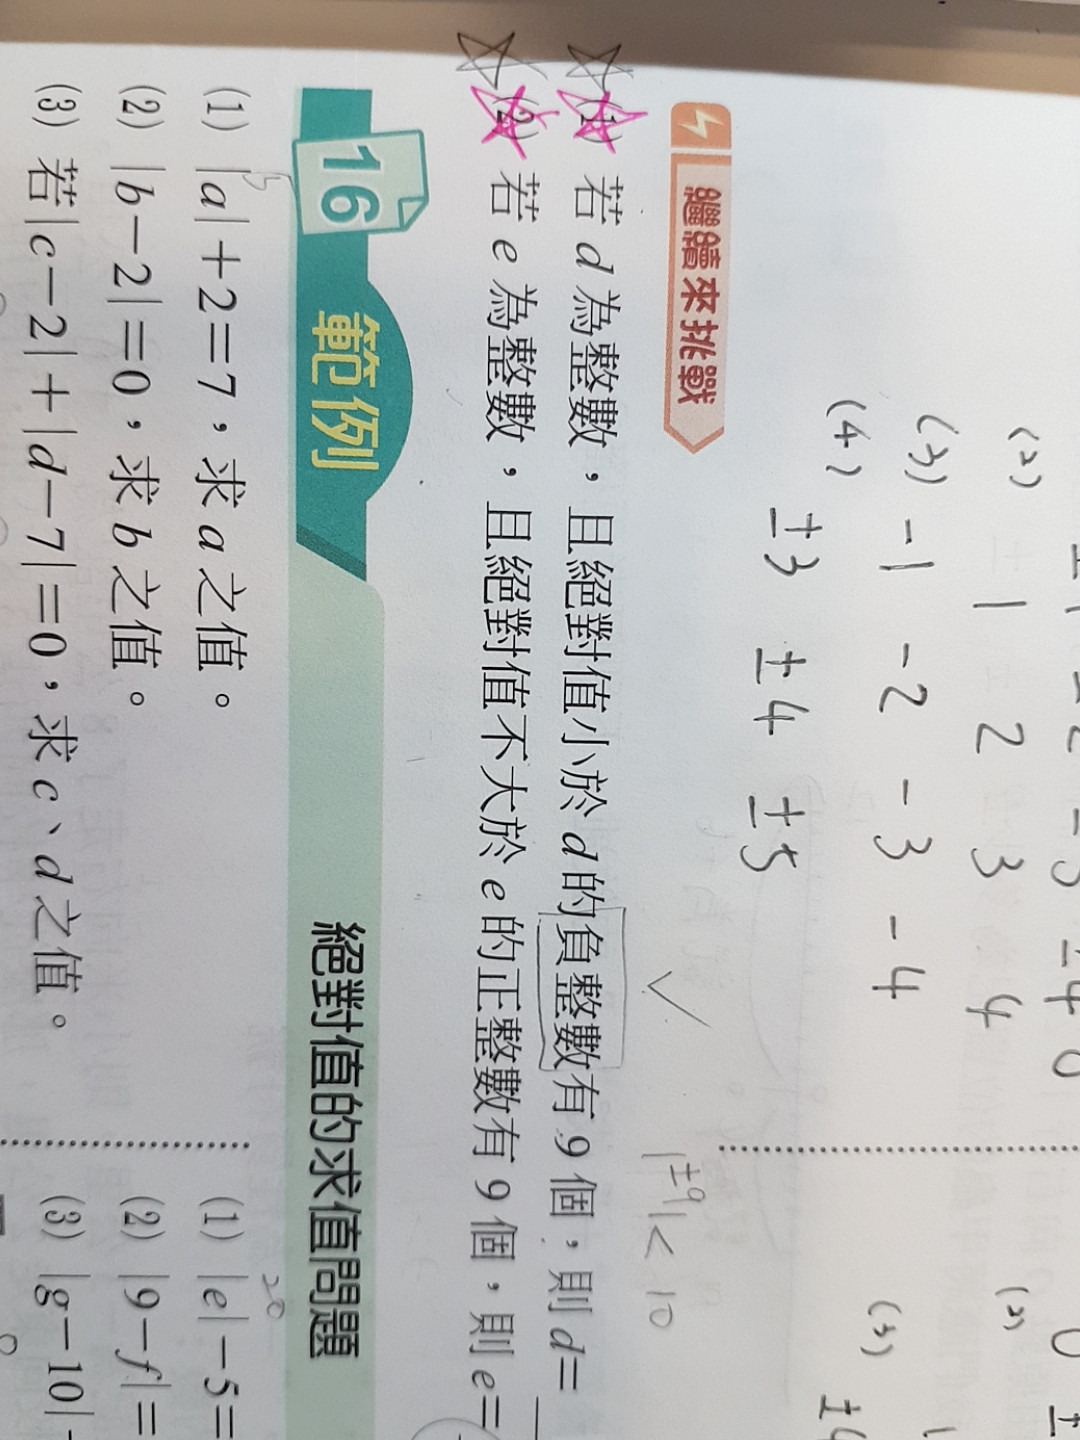 (2)
(3) -1 -2 -3 -4
1 2 3 4
(4)
±3 ±4 ±5
(2) 0
(3)
±4
繼續來挑戰
|±9|<10
(1) 若 d 為整數，且絕對值小於 d 的負整數有 9 個，則 d=
(2) 若 e 為整數，且絕對值不大於 e 的正整數有 9 個，則 e=
16 範例 絕對值的求值問題
(1) |a|+2=7，求 a 之值。
5
(2) |b-2|=0，求 b 之值。
(3) 若|c-2|+|d-7|=0，求 c、d 之值。
20
(1) |e|-5=
(2) |9-f|=
(3) |g-10|-